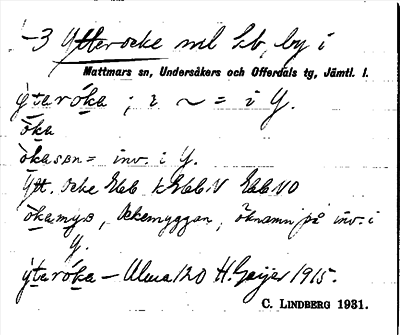 -3 Ytterocke ml kb, by i
Mattmars sn, Undersåkers och Offerdals tg, Jämtl. l.
ỳteróka ; i ~ = i Y.
òka
òkasən = inv. i Y.
Ytt. Ocke Ekbl
òkamyɞ, Ockemyggan, öknamn på inv. i
Y.
ỳteróka – Ulma 120 H. Geijer 1915.
C. LINDBERG 1931.